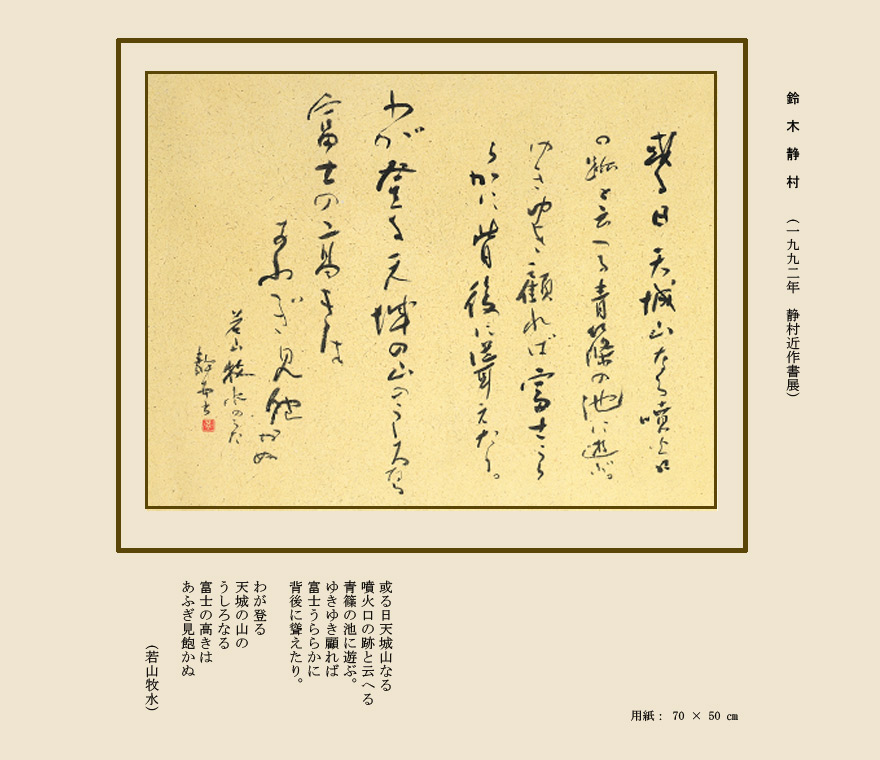 鈴木静村　（一九九二年　静村近作書展）
或る日天城山なる噴火口
の跡と云へる青篠の池に遊ぶ。
ゆきゆき顧れば富士うら
らかに背後に聳えたり。
わが登る天城の山のうしろなる
富士の高きは
あふぎ見飽かぬ
若山牧水のうた
或る日天城山なる
噴火口の跡と云へる
青篠の池に遊ぶ。
ゆきゆき顧れば
富士うららかに
背後に聳えたり。
わが登る
天城の山の
うしろなる
富士の高きは
あふぎ見飽かぬ
（若山牧水）
用紙： 70 × 50 cm